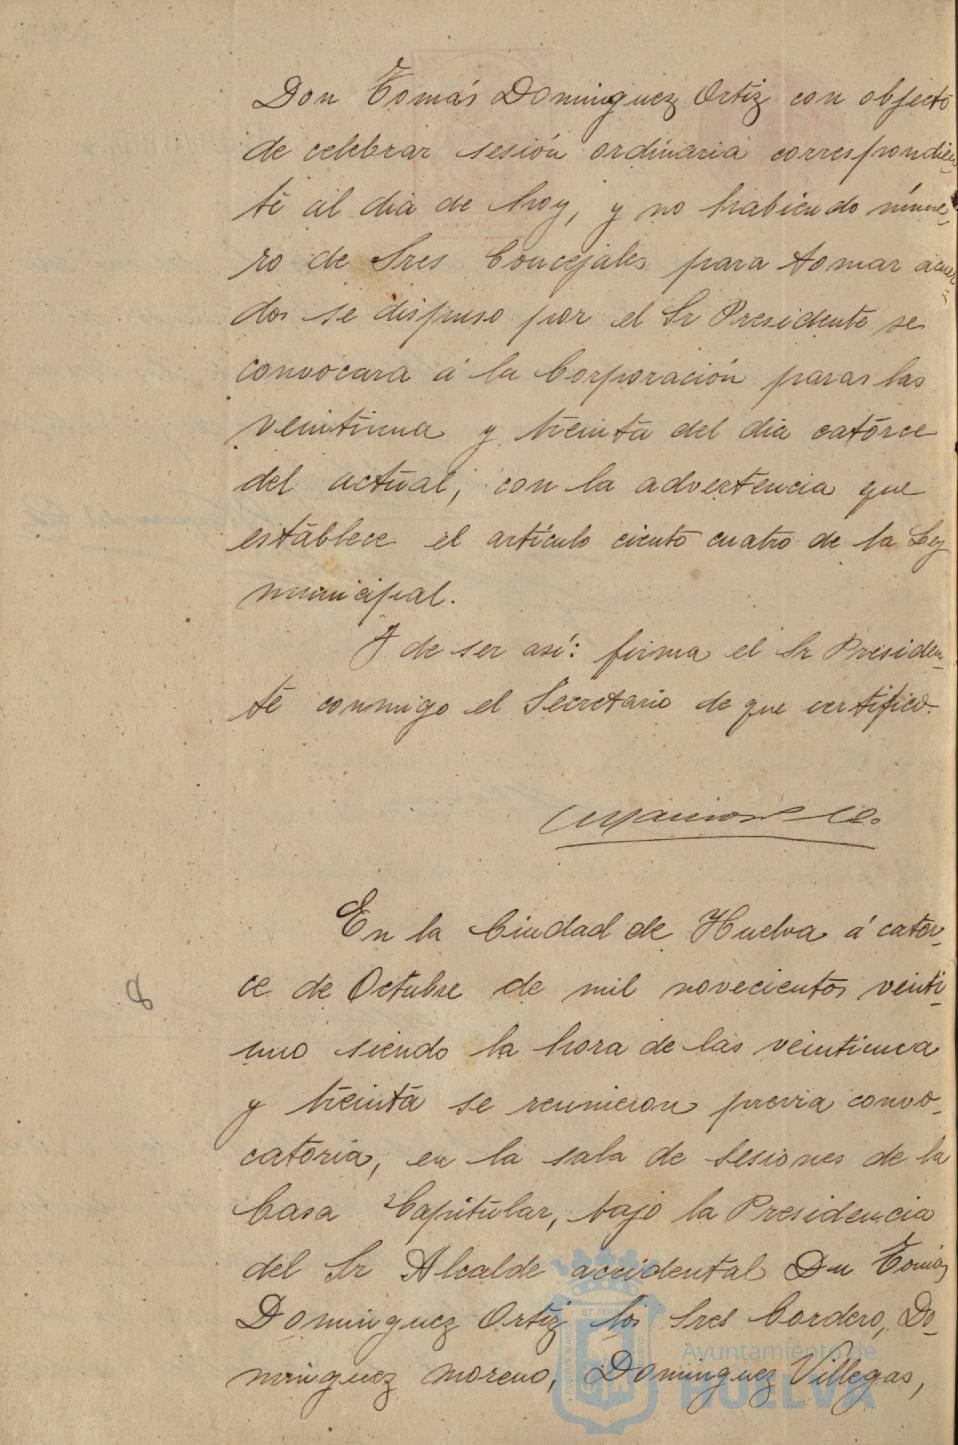 Don Tomás Dominguez Ortiz con objecto
de celebrar sesión ordinaria correspondien-
te al dia de hoy, y no habiendo núme-
ro de Sres Concejales para tomar acuer-
dos se dispuso por el Sr Presidente se
convocara á la Corporación paras las
veintiuna y treinta del dia catorce
del actual, con la advertencia que
establece el artículo ciento cuatro de la Ley
municipal.
Y de ser así: firma el Sr Presiden-
te conmigo el Secretario de que certifico.
En la Ciudad de Huelva á cator-
8
ce de Octubre de mil novecientos veinti-
uno siendo la hora de las veintiuna
y treinta se reunieron previa convo-
catoria, en la sala de sesiones de la
Casa Capitular, bajo la Presidencia
del Sr Alcalde accidental Dn Tomás
Dominguez Ortiz los Sres Cordero, Do-
minguez Moreno, Dominguez Villegas,
Ayuntamiento de
HUELVA